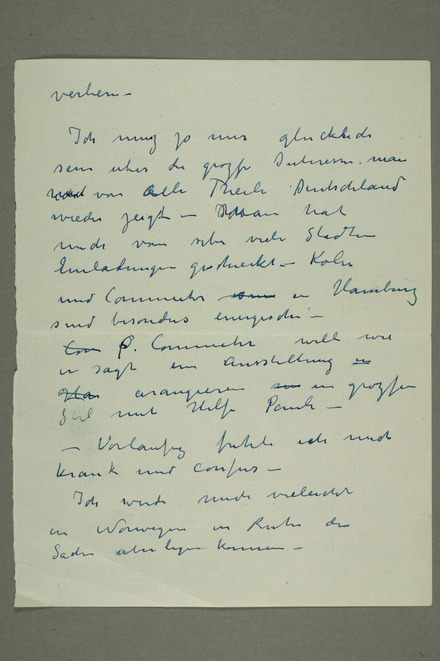 verliern –
Ich muz jo nur glucklich
sein uber die grozse Interesse. man
von alle Theile Deutschland
wieder zeigt – Man hat
mich von sehr viele Stadten
Einladungen geschickt – Koln
und Commeter in Hamburg
sind besonders energisch –
P. Commeter will wie
er sagt ein Ausstellung
arangieren in grozsen
Stil mit Hilfe Pauli –
– Vorlaufig fuhle ich mich
krank und confus –
Ich werde mich vieleicht
in Norwegen in Ruhe die
Sache uberlegen konnen –